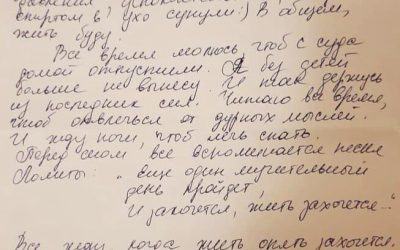 спиртом в ухо сунули:) В общем,
жить буду.
Все время молюсь чтоб с суда
домой отпустили. Я без детей
больше не вынесу. И так держусь
из последних сил. Читаю все время,
чтоб отвлечься от дурных мыслей.
И жду ночи, чтоб лечь спать.
Перед сном все вспоминается песня
Лолиты: "еще один мучительный
день пройдет,
И захочется, жить захочется..."
Все жду, когда жить опять захочется.